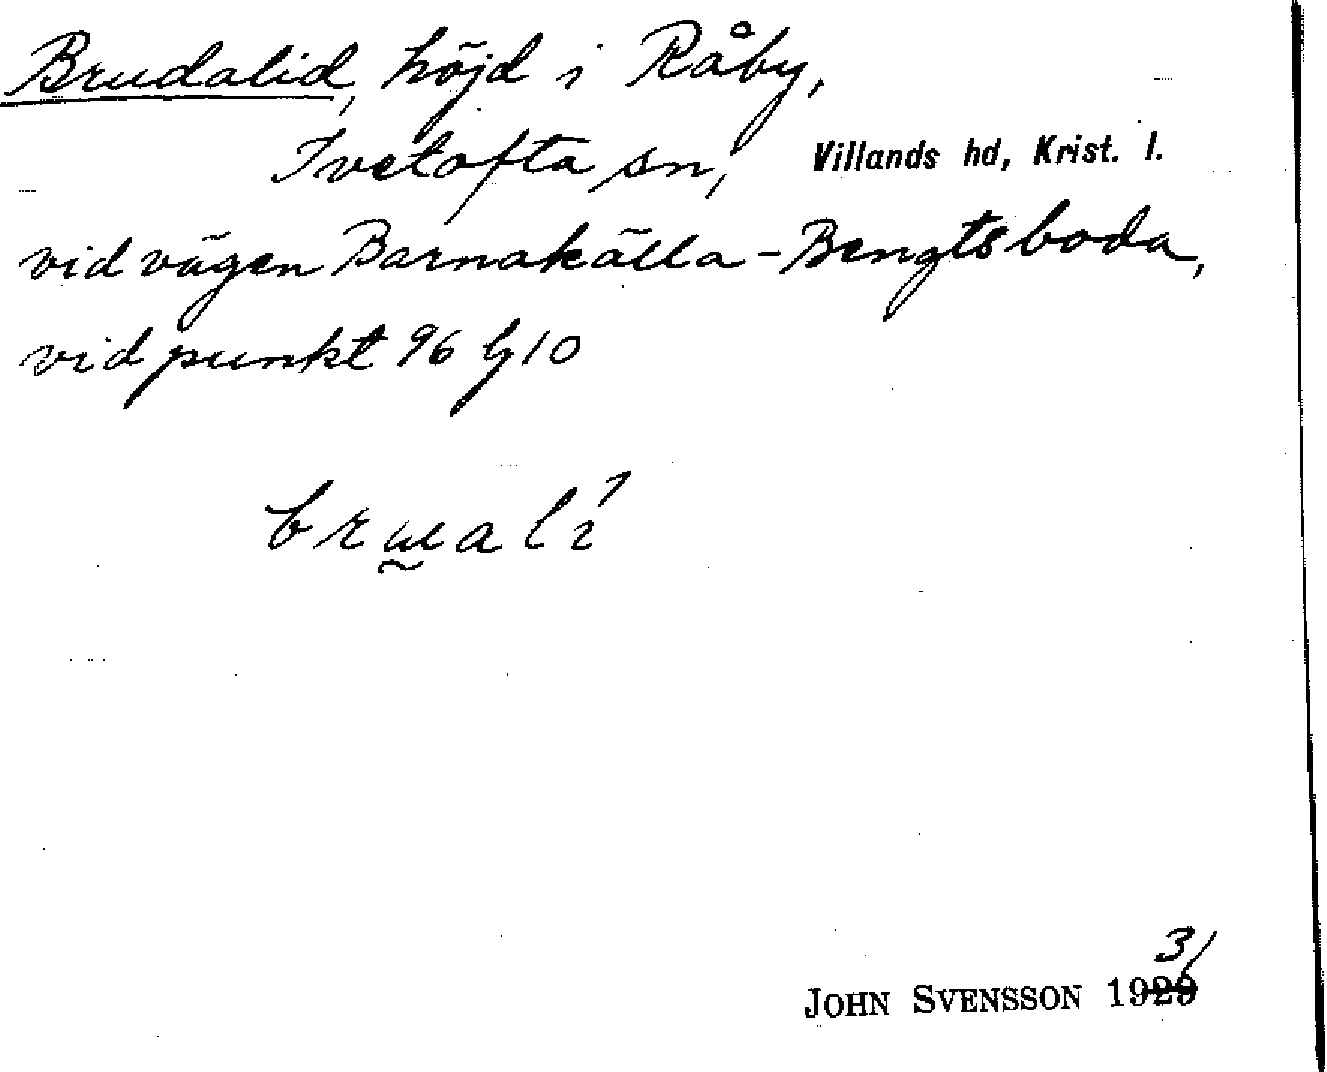 Brudalid, höjd i Råby,
Ivetofta sn, Villands hd, Krist. l.
vid vägen Barnakälla-Bengtsboda,
vid punkt 96
3/
JOHN SVENSSON 1929